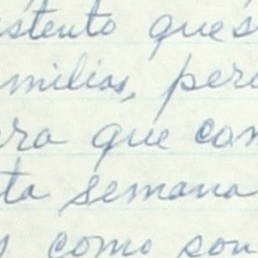 istento que s
milias, per
era que com
ta semana
s como son